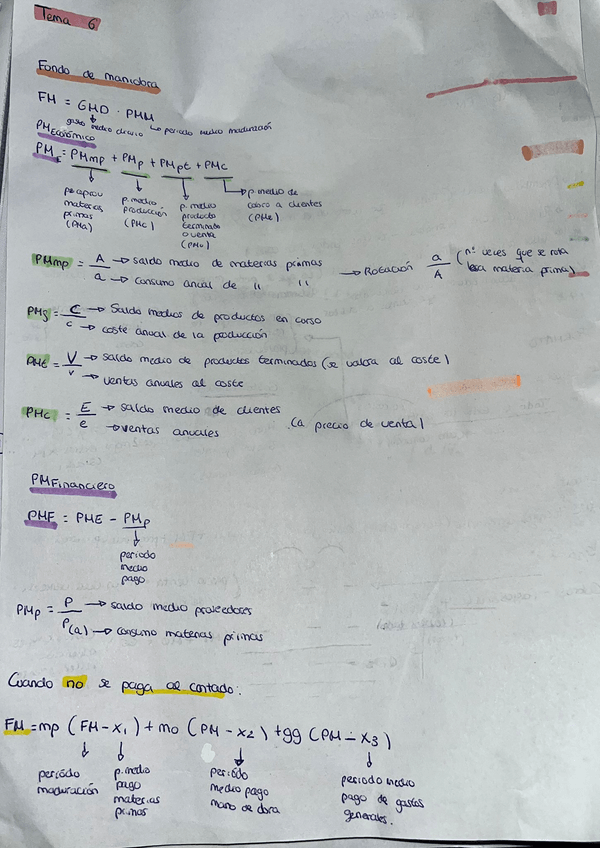 Tema 6
Fondo de maniobra
FM = GMD · PMM
gasto medio diario periodo medio maduración
PM Económico
PM = PMmp + PMp + PMpt + PMc
p. medio materias primas (PMa)
p. medio producción (PMc)
p. medio producto terminado o venta (PMv)
p. medio de cobro a clientes (PMe)
PMmp = A → saldo medio de materias primas
a → consumo anual de " " → Rotación a/A (nº veces que se rota esa materia prima)
PMf = C → Saldo medios de productos en curso
c → coste anual de la producción
PMt = V → saldo medio de productos terminados (se valora al coste)
v → ventas anuales al coste
PMc = E → saldo medio de clientes
e → ventas anuales (a precio de venta)
PM Financiero
PMF = PME - PMp
periodo medio pago
PMp = P → saldo medio proveedores
P(a) → consumo materias primas
Cuando no se paga al contado.
FM = mp (FM - x1) + mo (PM - x2) + gg (PM - x3)
periodo maduración
p. medio pago materias primas
periodo medio pago mano de obra
periodo medio pago de gastos generales.